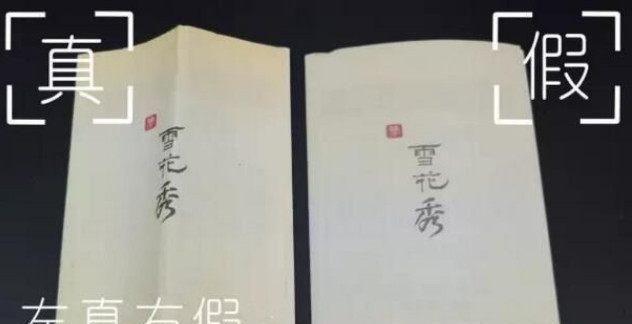 真
假
雪花秀
雪花秀
左真右假